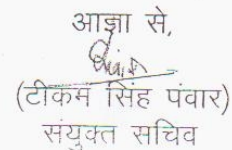 आज्ञा से,
(टीकम सिंह पंवार)
संयुक्त सचिव